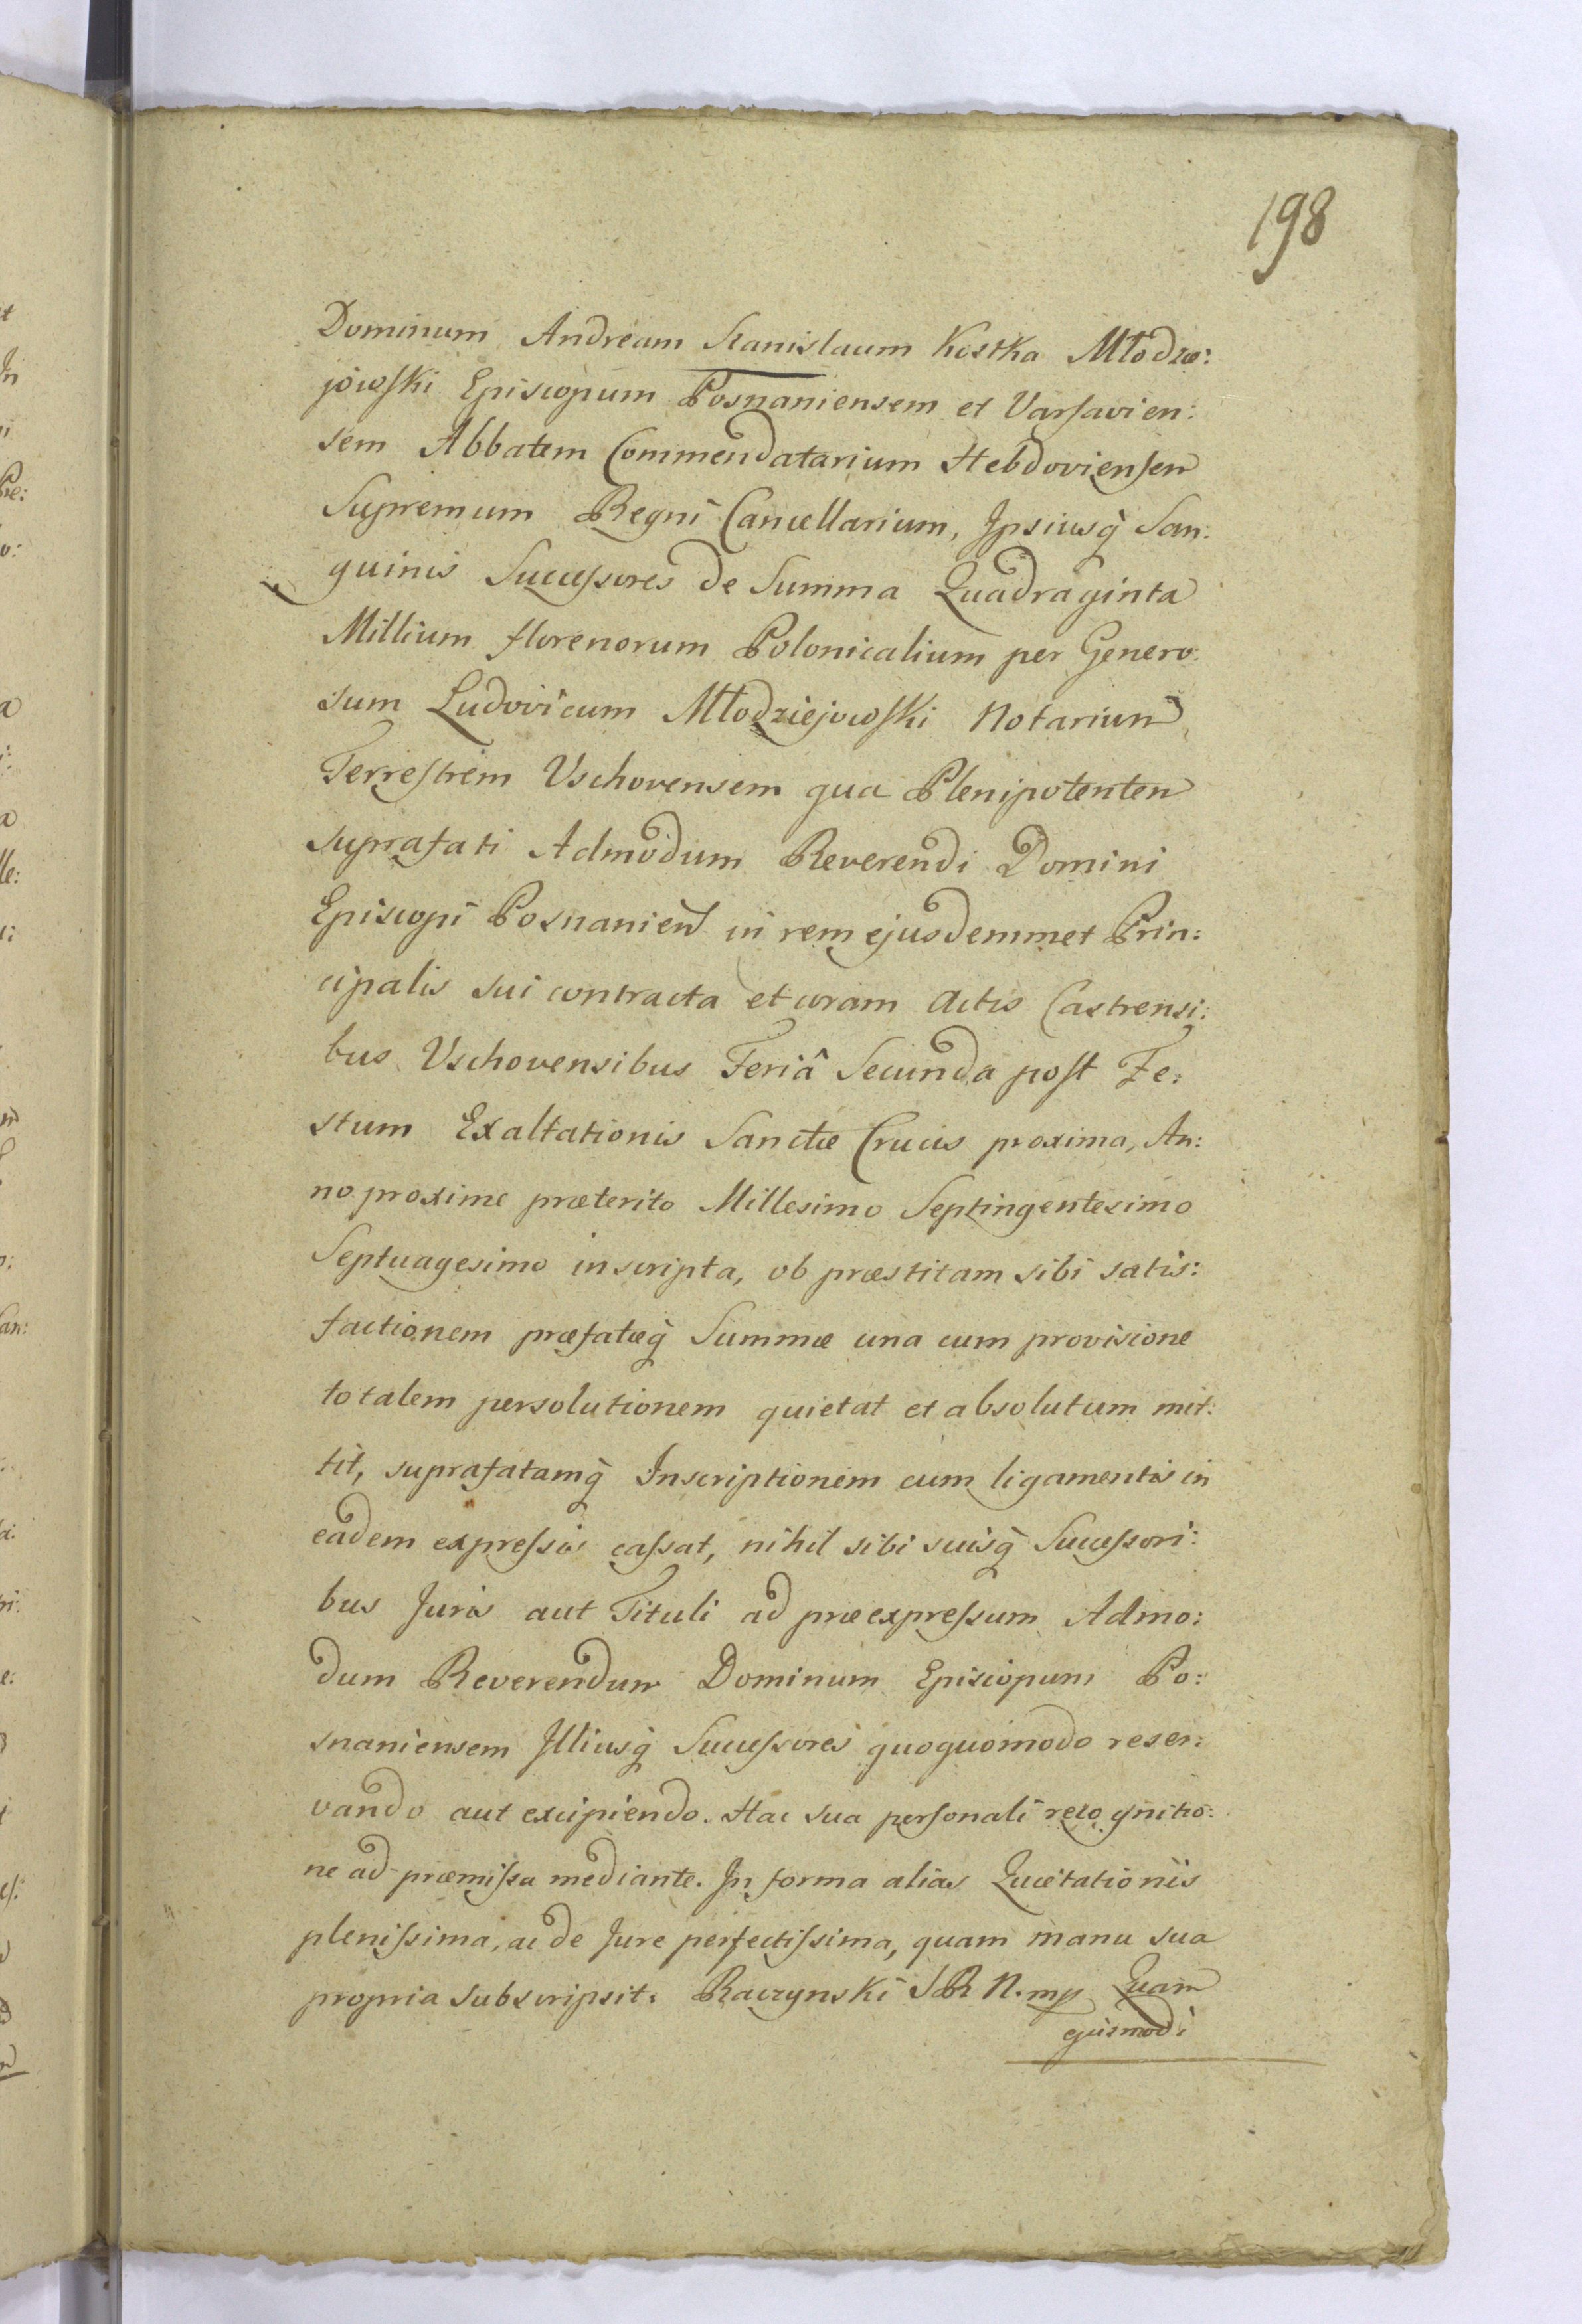 198
Dominum Andream Stanislaum Kostka Młodze:
jowski Episcopum Posnaniensem et Varsavien:
sem Abbatem Commendatarium Hebdoviensem
Supremum Regni Cancellarium, Ipsiusq̀ San:
guinis Successores de Summa Quadraginta
Millium florenorum Polonicalium per Genero:
sum Ludovicum Młodziejowski Notarium
Terrestrem Vschovensem qua Plenipotentem
suprafati Admodum Reverendi Domini
Episcopi Posnanien̄ in rem ejusdemmet Prin:
cipalis sui contracta et coram Actis Castrensi:
bus Vschovensibus Feriâ Secunda post Fe:
stum Exaltationis Sanctæ Crucis proxima, An:
no proxime præterito Millesimo Septingentesimo
Septuagesimo inscripta, ob præstitam sibi satis:
factionem præfatæq̀ Summæ una cum provisione
totalem persolutionem quietat et absolutum mit:
tit, suprafatamq̀ Inscriptionem cum ligamentis in
eadem expressis cassat, nihil sibi suisq̀ Successori:
bus Juris aut Tituli ad præexpressum Admo:
dum Reverendum Dominum Episcopum Po:
snaniensem Illiusq̀ Successores quoquomodo reser:
vando aut excipiendo. Hac sua personali recognitio:
ne ad præmissa mediante. In forma alias Quietationis
plenissima, ac de Jure perfectissima, quam manu sua
propria subscripsit. Raczynski SRN. mp Quam
ejusmodi